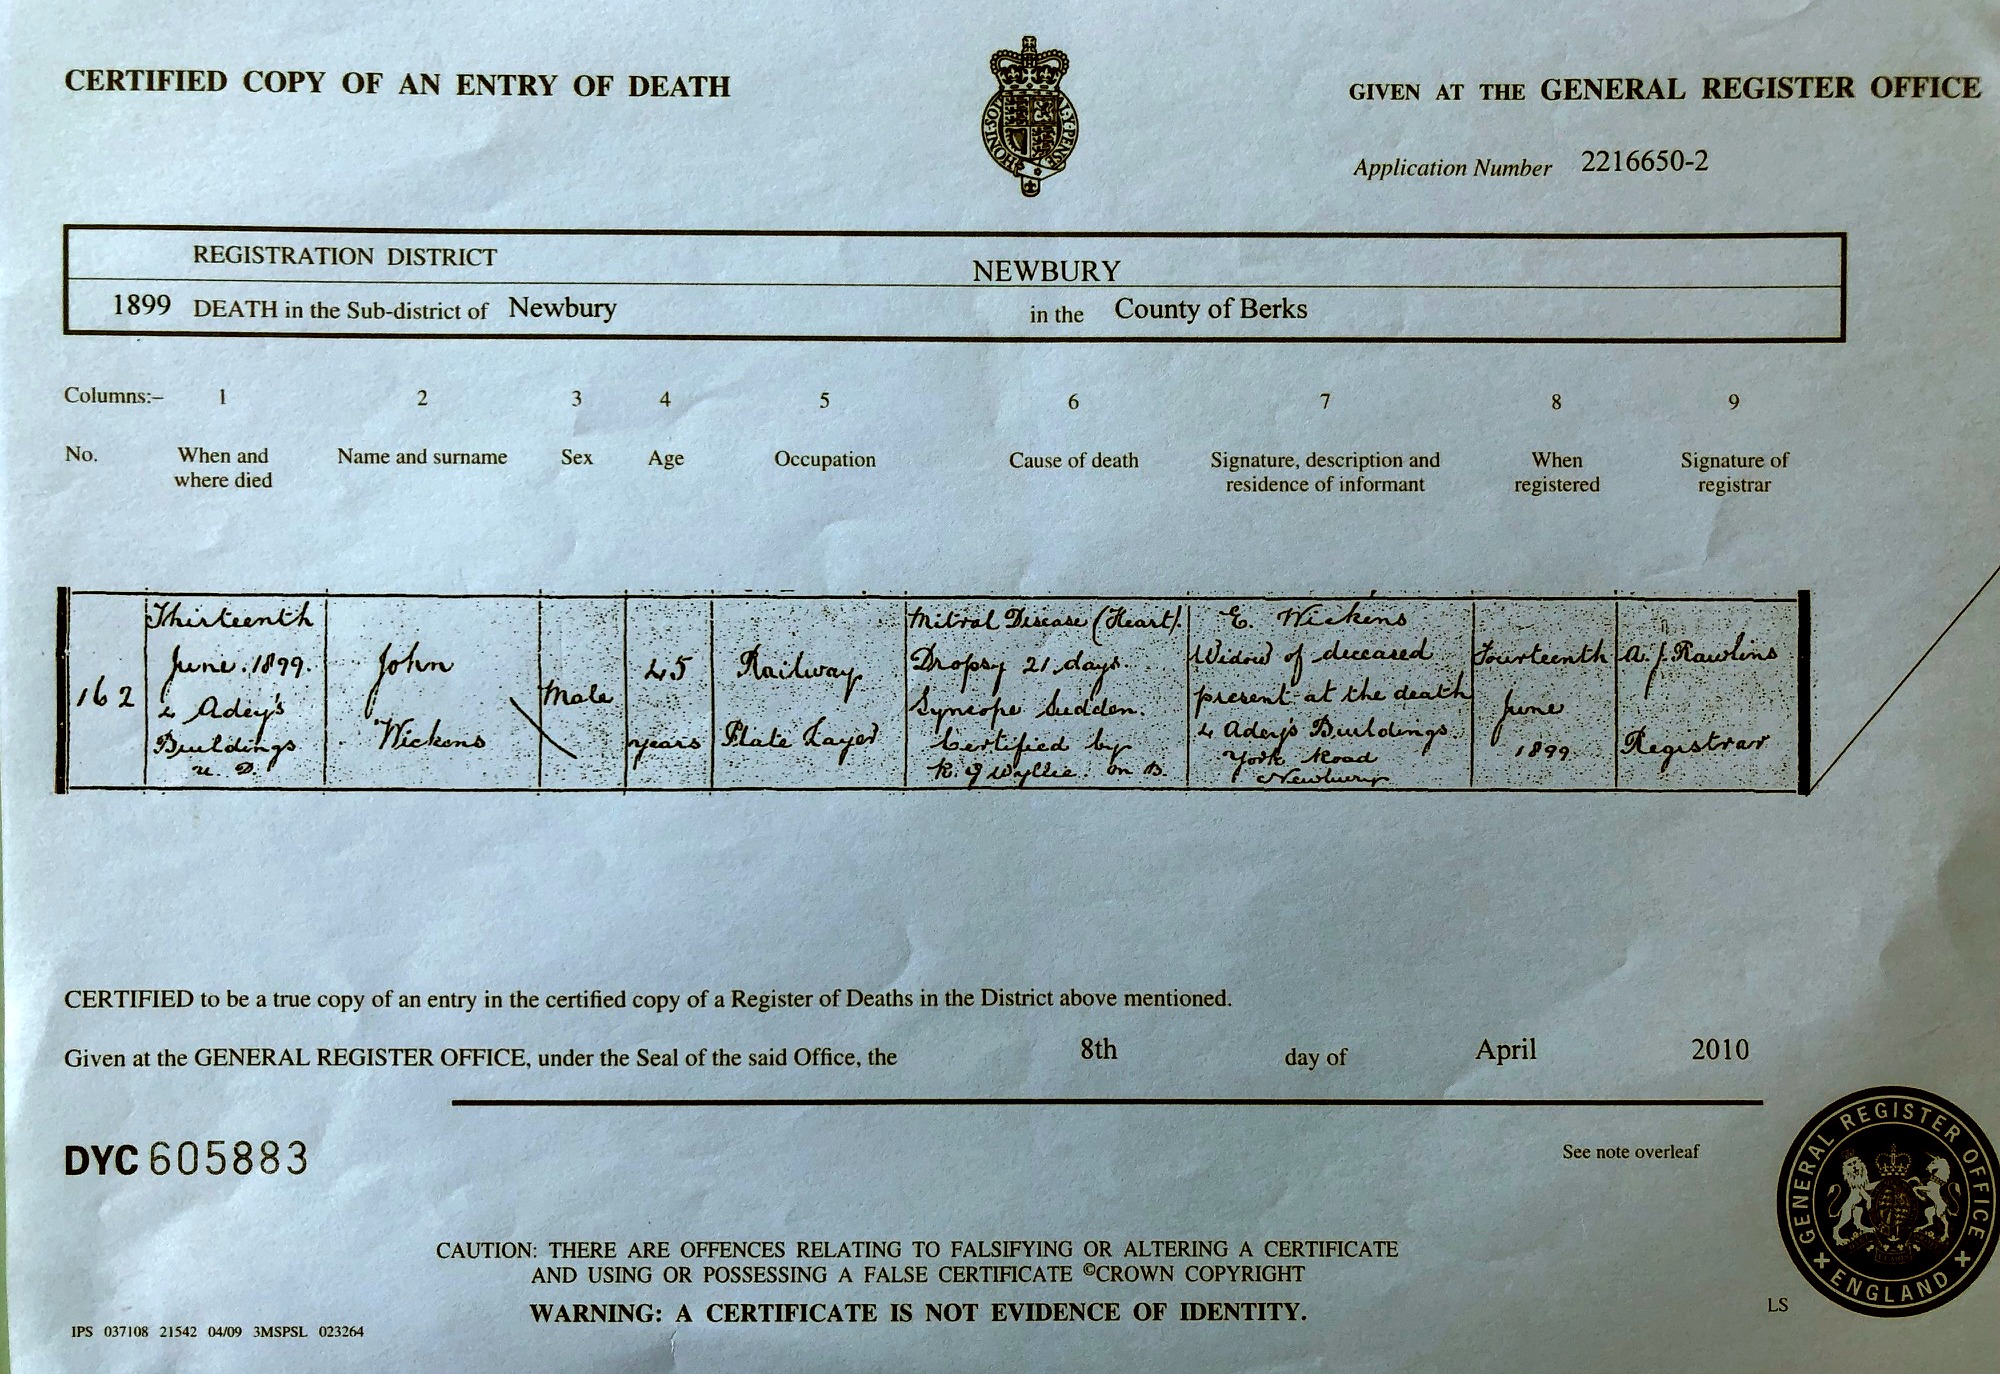 CERTIFIED COPY OF AN ENTRY OF DEATH
GIVEN AT THE GENERAL REGISTER OFFICE
HONI·SOI Y·PENSE
Application Number 2216650-2
REGISTRATION DISTRICT NEWBURY
1899 DEATH in the Sub-district of Newbury in the County of Berks
Columns:– 1 2 3 4 5 6 7 8 9
No. When and where died Name and surname Sex Age Occupation Cause of death Signature, description and residence of informant When registered Signature of registrar
162
Thirteenth
June. 1899.
4 Adey's
Buildings
U. D.
John
Wickens
Male
45
years
Railway
Plate Layer
Mitral Disease (Heart).
Dropsy 21 days.
Syncope Sudden.
Certified by
R. G Wyllie. M B.
E. Wickens
Widow of deceased
present at the death
4 Adey's Buildings
York Road
Newbury
Fourteenth
June
1899
A. J. Rawlins
Registrar
CERTIFIED to be a true copy of an entry in the certified copy of a Register of Deaths in the District above mentioned.
Given at the GENERAL REGISTER OFFICE, under the Seal of the said Office, the 8th day of April 2010
DYC 605883
See note overleaf
GENERAL REGISTER OFFICE
ENGLAND
CAUTION: THERE ARE OFFENCES RELATING TO FALSIFYING OR ALTERING A CERTIFICATE
AND USING OR POSSESSING A FALSE CERTIFICATE ©CROWN COPYRIGHT
WARNING: A CERTIFICATE IS NOT EVIDENCE OF IDENTITY.
LS
IPS 037108 21542 04/09 3MSPSL 023264